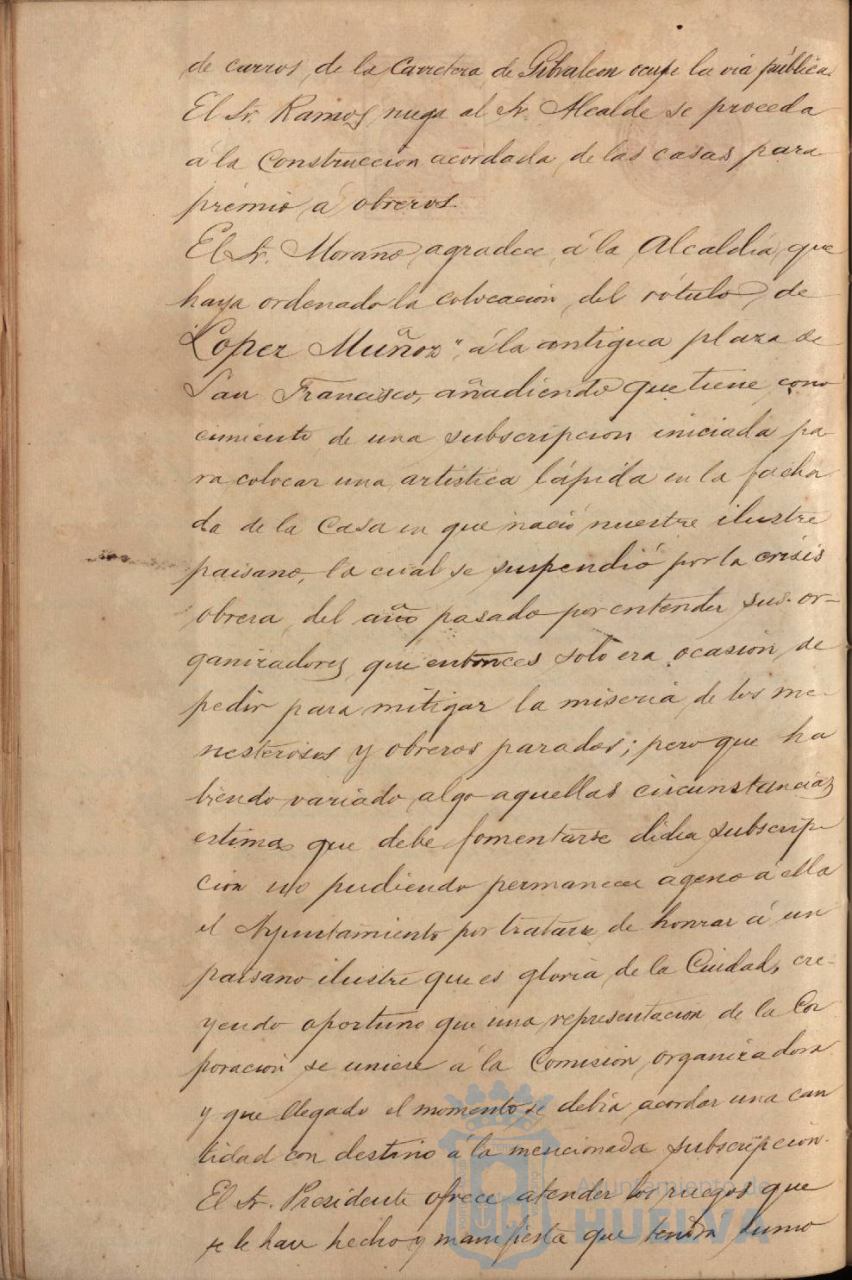 de carros, de la Carretera de Gibraleon ocupe la via pública.
El Sr. Ramos, ruega al Sr. Alcalde se proceda
á la construccion acordada, de las casas para
premio á obreros.
El Sr. Moraño, agradece á la Alcaldía, que
haya ordenado la colocación, del rótulo, de
"Lopez Muñoz", á la antigua plaza de
San Francisco, añadiendo que tiene, cono
cimiento de una subscripcion iniciada pa-
ra colocar una artistica lápida en la facha
da de la Casa en que nació nuestre ilustre
paisano, la cual se suspendió por la crisis
obrera, del año pasado por entender sus or-
ganizadores, que entonces solo era ocasión, de
pedir para mitigar la miseria, de los me-
nesterosos y obreros parados; pero que ha
biendo variado algo aquellas circunstancias
estima que debe fomentarse dicha subscrip-
ción no pudiendo permanecer ageno á ella
el Ayuntamiento por tratarse de honrar á un
paisano ilustre que es gloria de la Ciudad, cre-
yendo oportuno que una representacion de la Cor
poración se uniese á la Comisión, organizadora
y que llegado el momento, se debía acordar una can
tidad con destino á la mencionada subscripción.
El Sr. Presidente ofrece atender los ruegos que
se le han hecho y manifiesta que tendrá sumo
Ayuntamiento de
HUELVA